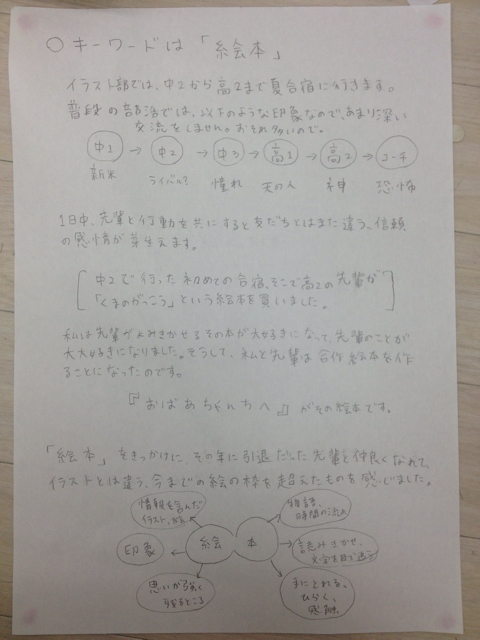 ○キーワードは「絵本」
イラスト部では、中2から高2まで夏合宿に行きます。
普段の部活では、以下のような印象なので、あまり深い
交流をしません。おそれ多いので。
中1 → 中2 → 中3 → 高1 → 高2 → コーチ
新米 ライバル? 憧れ 天の人 神 恐怖
1日中、先輩と行動を共にすると友だちとはまた違う、信頼
の感情が芽生えます。
中2で行った初めての合宿、そこで高2の先輩が
「くまのがっこう」という絵本を買いました。
私は先輩がよみきかせるその本が大好きになって、先輩のことが
大大好きになりました。そうして、私と先輩は合作絵本を作
ることになったのです。
『おばあちゃんちへ』がその絵本です。
「絵本」をきっかけに、その年に引退だった先輩と仲良くなれて、
イラストとは違う、今までの絵の枠を超えたものを感じました。
情報を含んだ
イラスト、
物語、
時間の流れ
印象
絵 本
読みきかせ、
文字を目で追う
思いが強く
残るところ
手にとれる、
ひらく、
感触、